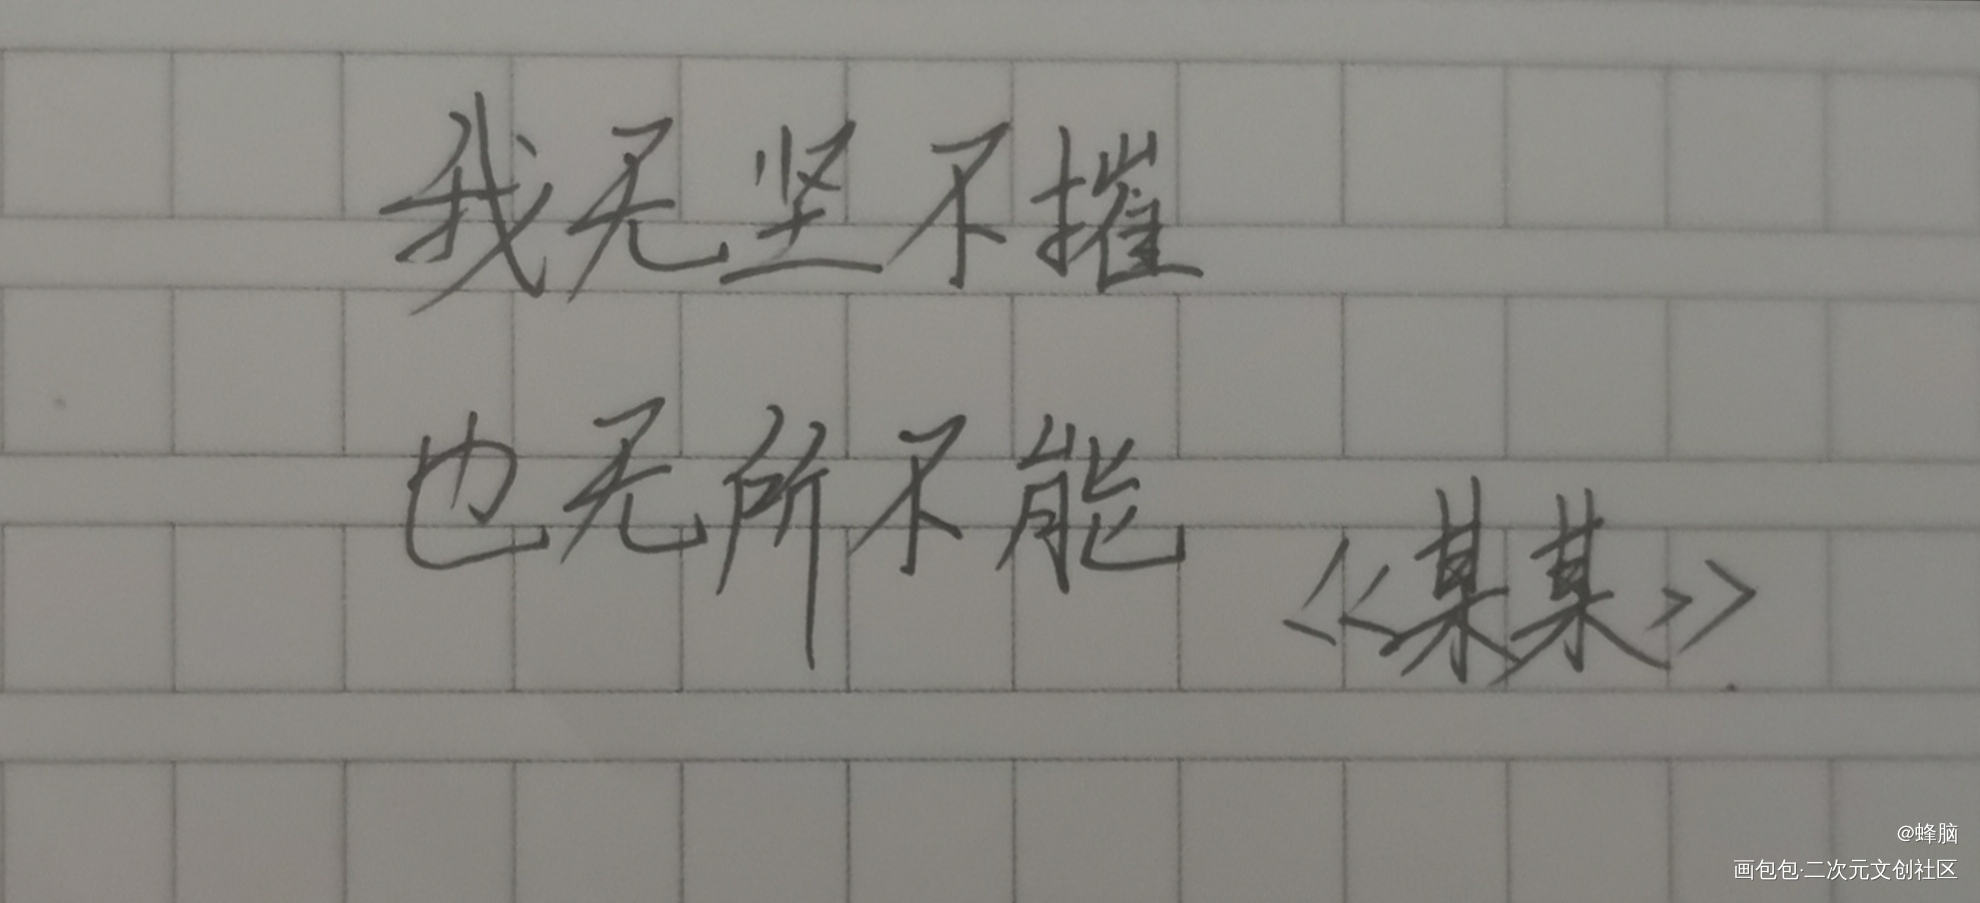 我无坚不摧
也无所不能
《某某》
@蜂脑
画包包·二次元文创社区